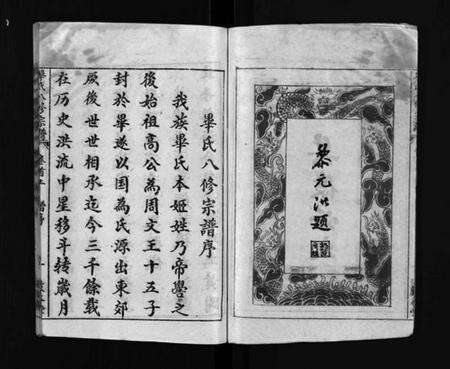 黎元洪題
畢氏八修宗譜序
我族畢氏本姬姓乃帝嚳之
後始祖高公為周文王十五子
封於畢遂以国為氏源出東郊
厥後世世相承迄今三千餘載
在历史洪流中星移斗转歲月
畢氏八修宗譜